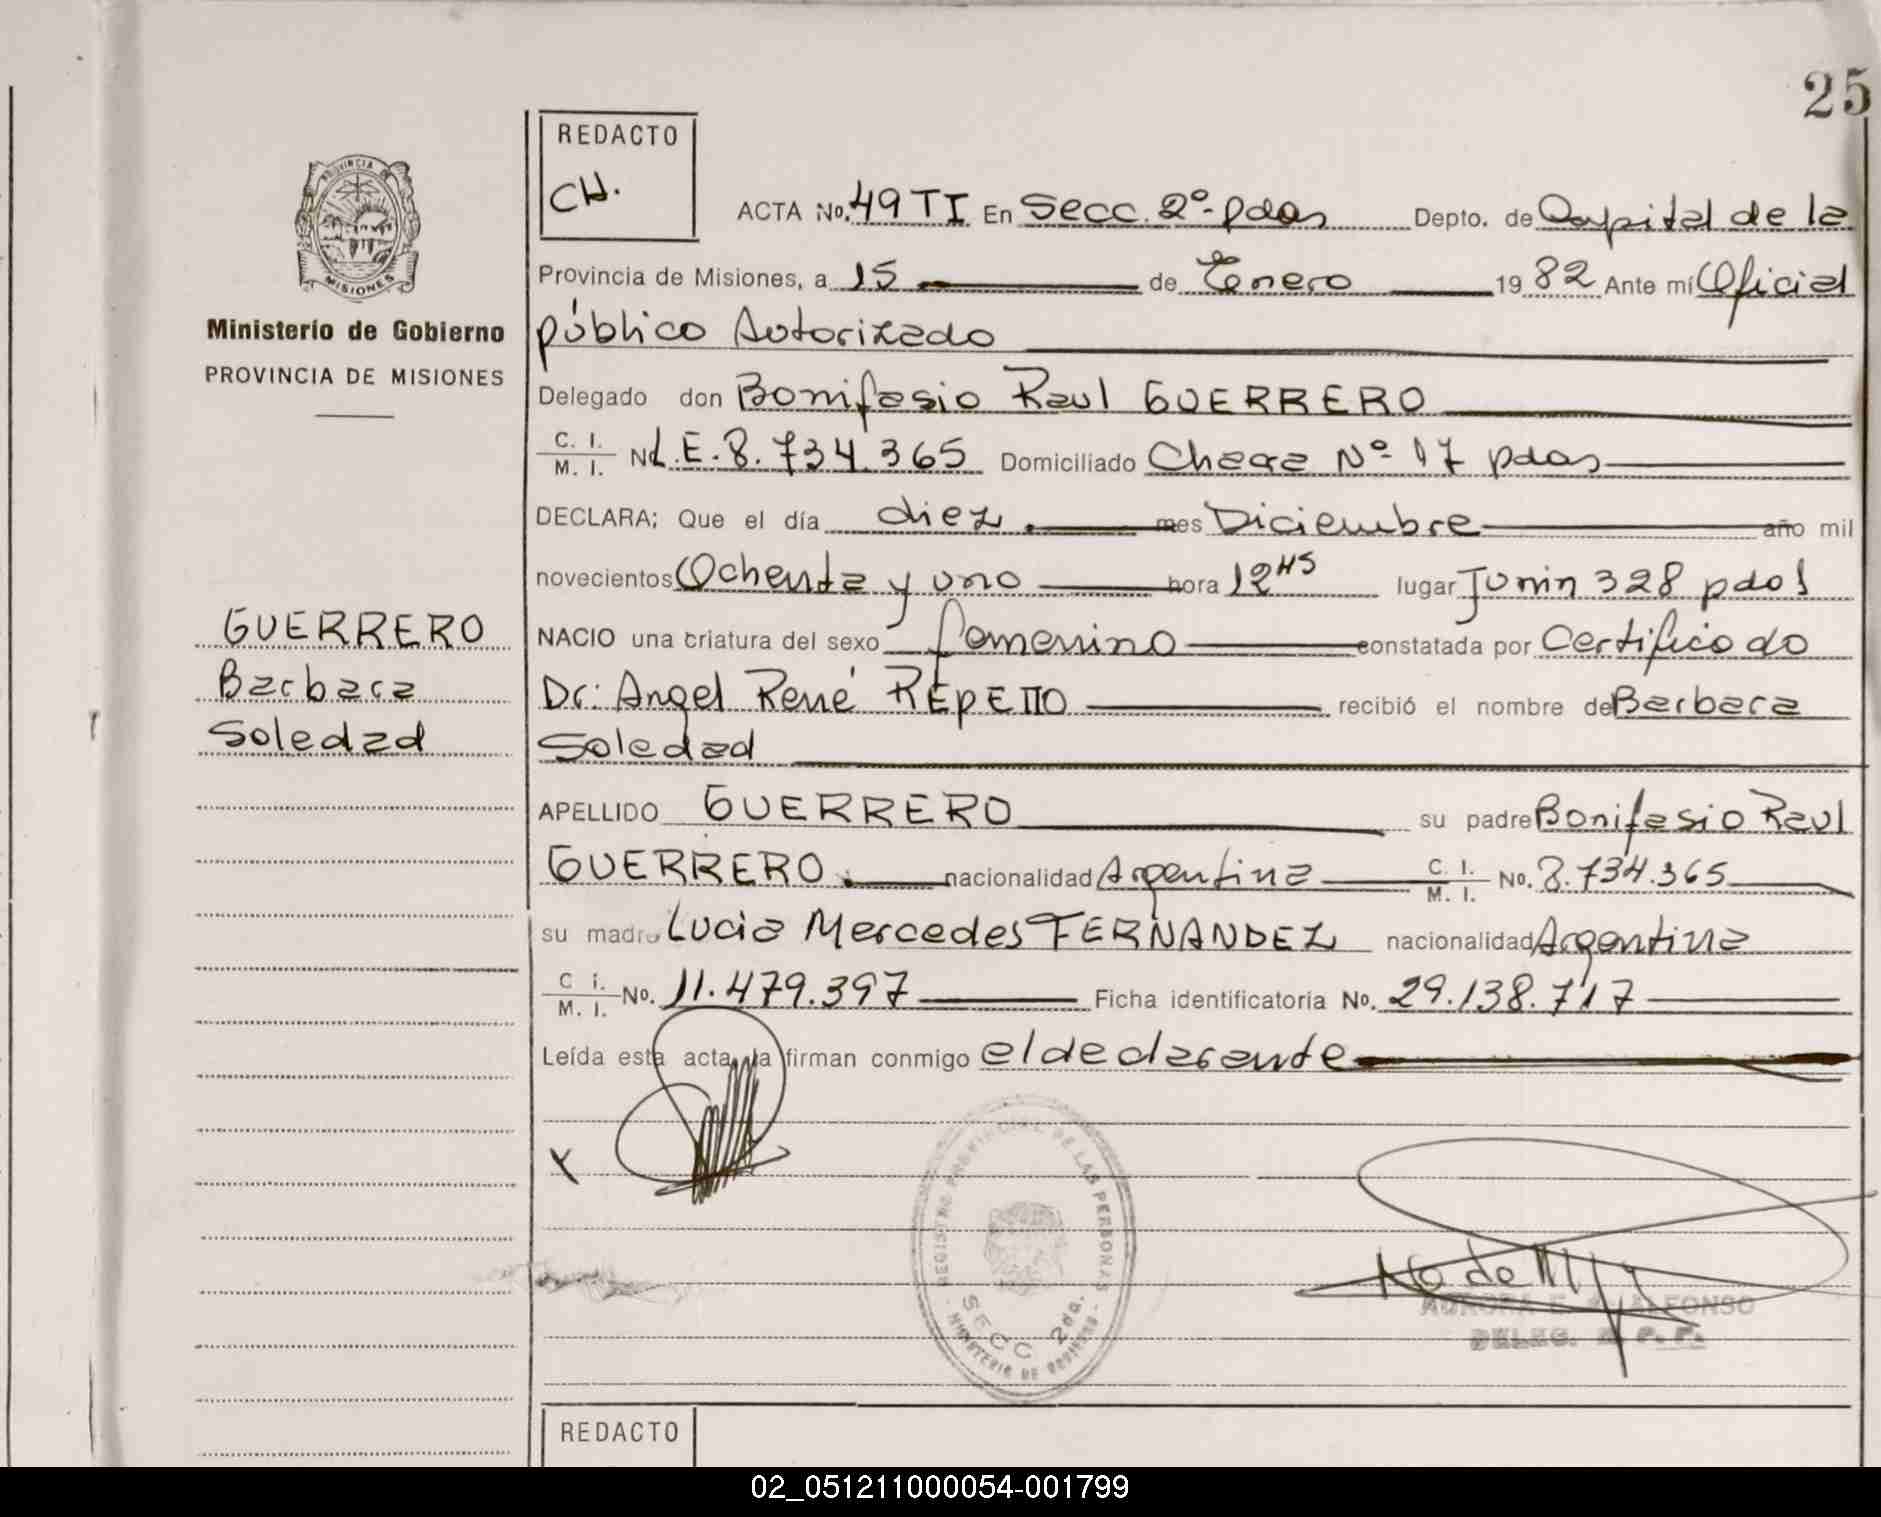 25
REDACTO
CH.
PROVINCIA DE
MISIONES
Ministerio de Gobierno
PROVINCIA DE MISIONES
ACTA No. 49 TI En Secc. 2º - pdas Depto. de Capital de la
Provincia de Misiones, a 15 de Enero 1982 Ante mí Oficial
público Autorizado
Delegado don Bonifasio Raul GUERRERO
C. I. / M. I. No L.E. 8.734.365 Domiciliado Chacra Nº 17 pdas
DECLARA; Que el día diez mes Diciembre año mil
novecientos Ochenta y uno hora 12 45 lugar Junin 328 pdas
NACIO una criatura del sexo femenino constatada por Certificado
Dr: Angel René REPETTO recibió el nombre de Barbara
Soledad
GUERRERO
Barbara
Soledad
APELLIDO GUERRERO su padre Bonifasio Raul
GUERRERO nacionalidad Argentina C. I. / M. I. No. 8.734.365
su madre Lucia Mercedes FERNANDEZ nacionalidad Argentina
C. I. / M. I. No. 11.479.397 Ficha identificatoria No. 29.138.717
Leída esta acta la firman conmigo el declarante
X
REGISTRO PROVINCIAL DE LAS PERSONAS
SECC 2da.
MINISTERIO DE GOBIERNO
AURORA E. ALFONSO
DELEG. R. P. P.
REDACTO
02_051211000054-001799